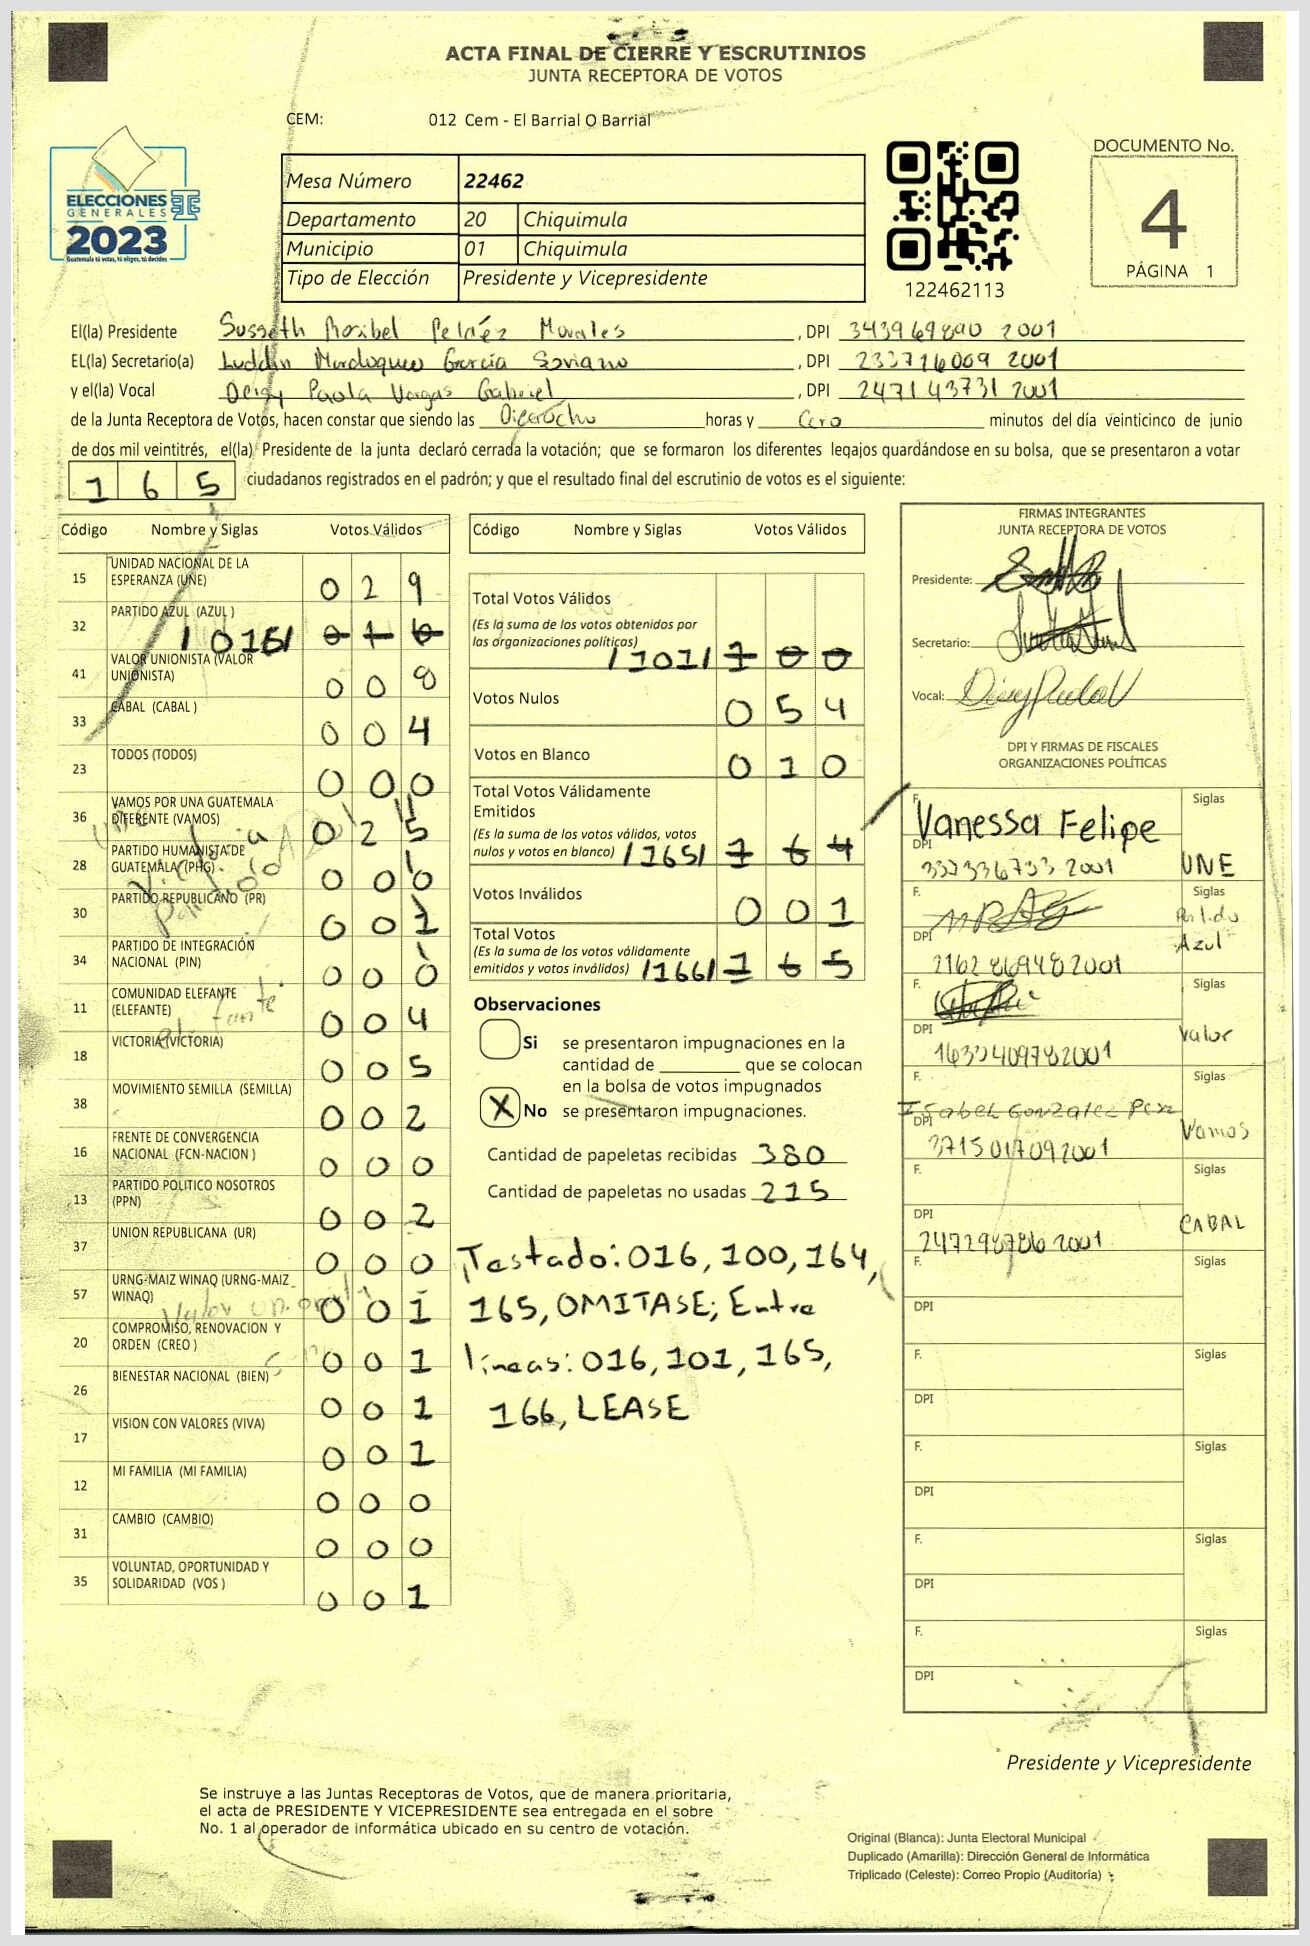 ACTA FINAL DE CIERRE Y ESCRUTINIOS
JUNTA RECEPTORA DE VOTOS
CEM: 012 Cem - El Barrial O Barrial
ELECCIONES
GENERALES
2023
Guatemala tú votas, tú eliges, tú decides
Mesa Número 22462
Departamento 20 Chiquimula
Municipio 01 Chiquimula
Tipo de Elección Presidente y Vicepresidente
122462113
DOCUMENTO No.
4
PÁGINA 1
El(la) Presidente Susseth Maribel Peláez Morales, DPI 343969890 2001
EL(la) Secretario(a) Luddin Mardoqueo García Soriano, DPI 233716009 2001
y el(la) Vocal Deisy Paola Vargas Gabriel, DPI 247143731 2001
de la Junta Receptora de Votos, hacen constar que siendo las Dieciocho horas y Cero minutos del día veinticinco de junio
de dos mil veintitrés, el(la) Presidente de la junta declaró cerrada la votación; que se formaron los diferentes legajos guardándose en su bolsa, que se presentaron a votar
165 ciudadanos registrados en el padrón; y que el resultado final del escrutinio de votos es el siguiente:
Código Nombre y Siglas Votos Válidos
15 UNIDAD NACIONAL DE LA ESPERANZA (UNE) 0 2 9
32 PARTIDO AZUL (AZUL ) / 0 16/ 0 1 6
41 VALOR UNIONISTA (VALOR UNIONISTA) 0 0 8
33 CABAL (CABAL ) 0 0 4
23 TODOS (TODOS) 0 0 0
36 VAMOS POR UNA GUATEMALA DIFERENTE (VAMOS) 0 2 5
28 PARTIDO HUMANISTA DE GUATEMALA (PHG) 0 0 0
30 PARTIDO REPUBLICANO (PR) 0 0 1
34 PARTIDO DE INTEGRACIÓN NACIONAL (PIN) 0 0 0
11 COMUNIDAD ELEFANTE (ELEFANTE) 0 0 4
18 VICTORIA (VICTORIA) 0 0 5
38 MOVIMIENTO SEMILLA (SEMILLA) 0 0 2
16 FRENTE DE CONVERGENCIA NACIONAL (FCN-NACION ) 0 0 0
13 PARTIDO POLITICO NOSOTROS (PPN) 0 0 2
37 UNION REPUBLICANA (UR) 0 0 0
57 URNG-MAIZ WINAQ (URNG-MAIZ WINAQ) 0 0 1
20 COMPROMISO, RENOVACION Y ORDEN (CREO ) 0 0 1
26 BIENESTAR NACIONAL (BIEN) 0 0 1
17 VISION CON VALORES (VIVA) 0 0 1
12 MI FAMILIA (MI FAMILIA) 0 0 0
31 CAMBIO (CAMBIO) 0 0 0
35 VOLUNTAD, OPORTUNIDAD Y SOLIDARIDAD (VOS ) 0 0 1
Código Nombre y Siglas Votos Válidos
Total Votos Válidos
(Es la suma de los votos obtenidos por
las organizaciones políticas) /101/ 1 0 0
Votos Nulos 0 5 4
Votos en Blanco 0 1 0
Total Votos Válidamente
Emitidos
(Es la suma de los votos válidos, votos
nulos y votos en blanco) /165/ 1 6 4
Votos Inválidos 0 0 1
Total Votos
(Es la suma de los votos válidamente
emitidos y votos inválidos) /166/ 1 6 5
Observaciones
Si se presentaron impugnaciones en la
cantidad de ________ que se colocan
en la bolsa de votos impugnados
X No se presentaron impugnaciones.
Cantidad de papeletas recibidas 380
Cantidad de papeletas no usadas 215
Testado: 016, 100, 164,
165, OMITASE; Entre
líneas: 016, 101, 165,
166, LEASE
FIRMAS INTEGRANTES
JUNTA RECEPTORA DE VOTOS
Presidente:
Secretario:
Vocal:
DPI Y FIRMAS DE FISCALES
ORGANIZACIONES POLÍTICAS
F. Vanessa Felipe Siglas
DPI 332336733 2001 UNE
F. Siglas
DPI 2162 86948 2001 Partido Azul
F. Siglas
DPI 163340978 2001 Valor
F. Isabel Gonzalez Siglas
DPI 371501709 2001 Vamos
F. Siglas
DPI 247298786 2001 CABAL
F. Siglas
DPI
F. Siglas
DPI
F. Siglas
DPI
F. Siglas
DPI
F. Siglas
DPI
Presidente y Vicepresidente
Se instruye a las Juntas Receptoras de Votos, que de manera prioritaria,
el acta de PRESIDENTE Y VICEPRESIDENTE sea entregada en el sobre
No. 1 al operador de informática ubicado en su centro de votación.
Original (Blanca): Junta Electoral Municipal
Duplicado (Amarilla): Dirección General de Informática
Triplicado (Celeste): Correo Propio (Auditoría)